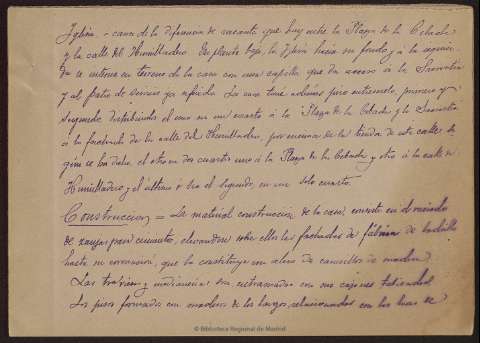 Iglesia, à causa de la diferencia de rasante que hay entre la Plaza de la Cebada
y la calle del Humilladero. En planta baja, la Iglesia hacia su fondo y á la
se interna en terreno de la casa con una capilla que da acceso á la Sacristía
y al patio de servicio ya referido. La casa tiene además piso entresuelo, primero y
segundo distribuidos el uno en un cuarto á la Plaza de la Cebada y la Sacristía
á la fachada de la calle del Humilladero, por encima de la tienda de esta calle, se
gún se ha dicho, el otro en dos cuartos uno á la Plaza de la Cebada y otro á la calle de
Humilladero y el último ó sea el segundo en un solo cuarto.
Construccion = La material construcción de la casa, consiste en el vaciado
de zanjas para cimientos, elevandose sobre ellos las fachadas de fábrica de ladrillo
hasta su coronacion, que la constituye un alero de canecillos de madera.
Las traviesas y medianerías son entramadas con sus cajones
Los pisos formados con maderos de los largos, relacionados con las luces de
© Biblioteca Regional de Madrid